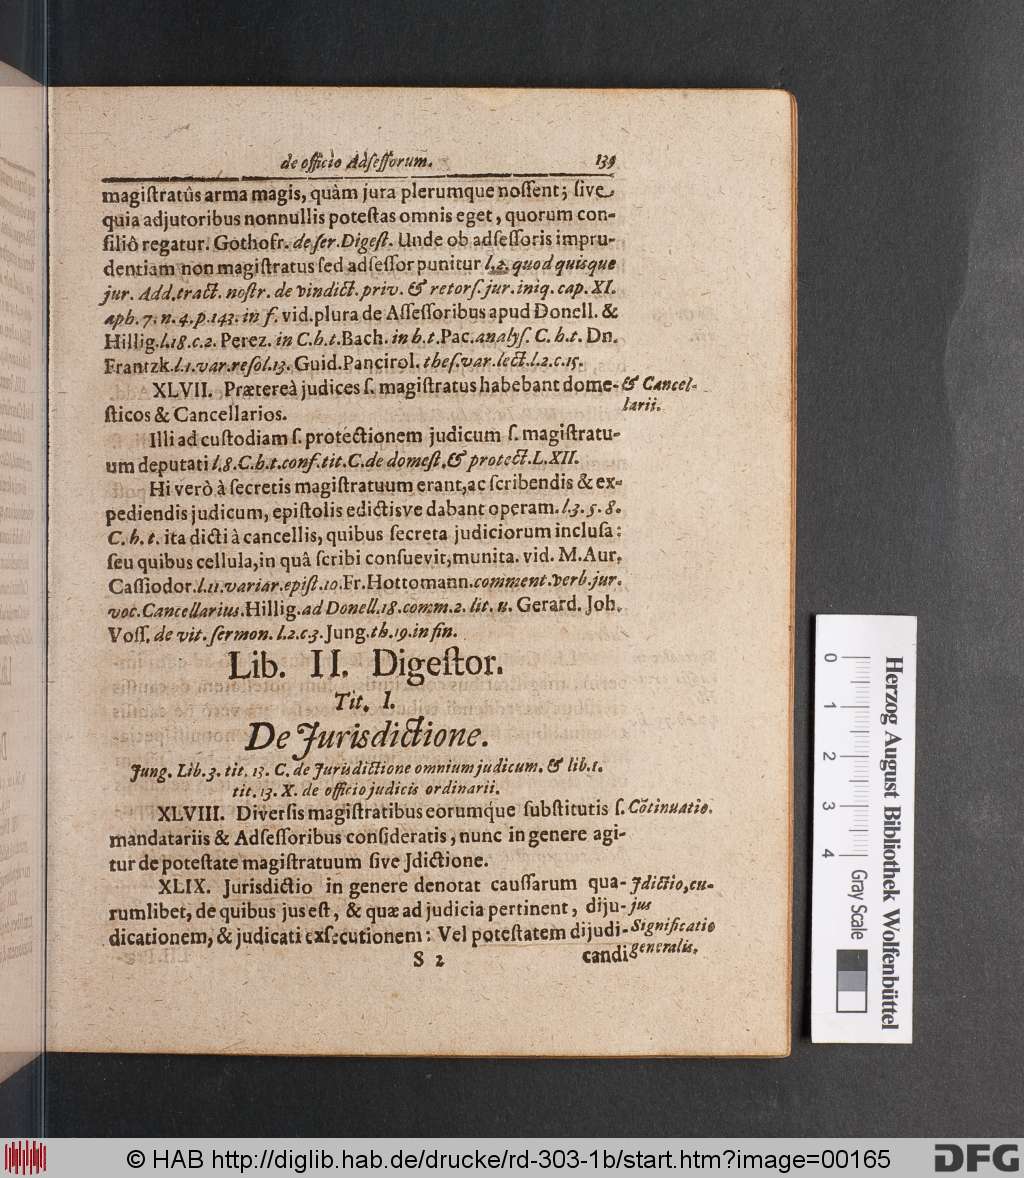 de officio Adſeſſorum. 139
magiſtratûs arma magis, quàm jura plerumque noſſent; ſive
quia adjutoribus nonnullis poteſtas omnis eget, quorum con-
ſiliô regatur. Gothofr. de ſer. Digeſt. Unde ob adſeſſoris impru-
dentiam non magiſtratus ſed adſeſſor punitur l. 2. quod quisque
jur. Add. tract. noſtr. de vindict. priv. & retorſ. jur. iniq. cap. XI.
aph. 7. n. 4. p. 143. in f. vid. plura de Aſſeſſoribus apud Donell. &
Hillig. l. 18. c. 2. Perez. in C. h. t. Bach. in h. t. Pac. analyſ. C. h. t. Dn.
Frantzk. l. 1. var. reſol. 13. Guid. Pancirol. theſ. var. lect. l. 2. c. 15.
XLVII. Prætereà judices ſ. magiſtratus habebant dome-
& Cancel-
larii.
ſticos & Cancellarios.
Illi ad cuſtodiam ſ. protectionem judicum ſ. magiſtratu-
um deputati l. 8. C. h. t. conf. tit. C. de domeſt. & protect. L. XII.
Hi verò à ſecretis magiſtratuum erant, ac ſcribendis & ex-
pediendis judicum, epiſtolis edictisve dabant operam. l. 3. 5. 8.
C. h. t. ita dicti à cancellis, quibus ſecreta judiciorum incluſa:
ſeu quibus cellula, in quâ ſcribi conſuevit, munita. vid. M. Aur.
Caſſiodor. l. 11. variar. epiſt. 10. Fr. Hottomann. comment. verb. jur.
voc. Cancellarius. Hillig. ad Donell. 18. comm. 2. lit. u. Gerard. Joh.
Voſſ. de vit. ſermon. l. 2. c. 3. Jung. th. 19. in fin.
Lib. II. Digeſtor.
Tit. I.
De Jurisdictione.
Jung. Lib. 3. tit. 13. C. de Jurisdictione omnium judicum. & lib. 1.
tit. 13. X. de officio judicis ordinarii.
XLVIII. Diverſis magiſtratibus eorumque ſubſtitutis ſ.
Cõtinuatio.
mandatariis & Adſeſſoribus conſideratis, nunc in genere agi-
tur de poteſtate magiſtratuum ſive Jdictione.
XLIX. Jurisdictio in genere denotat cauſſarum qua-
Jdictio, cu-
rumlibet, de quibus jus eſt, & quæ ad judicia pertinent, diju-
jus
dicationem, & judicati exſecutionem: Vel poteſtatem dijudi-
Significatio
generalis.
S 2 candi
0 1 2 3 4
Gray Scale
Herzog August Bibliothek Wolfenbüttel
© HAB http://diglib.hab.de/drucke/rd-303-1b/start.htm?image=00165
DFG